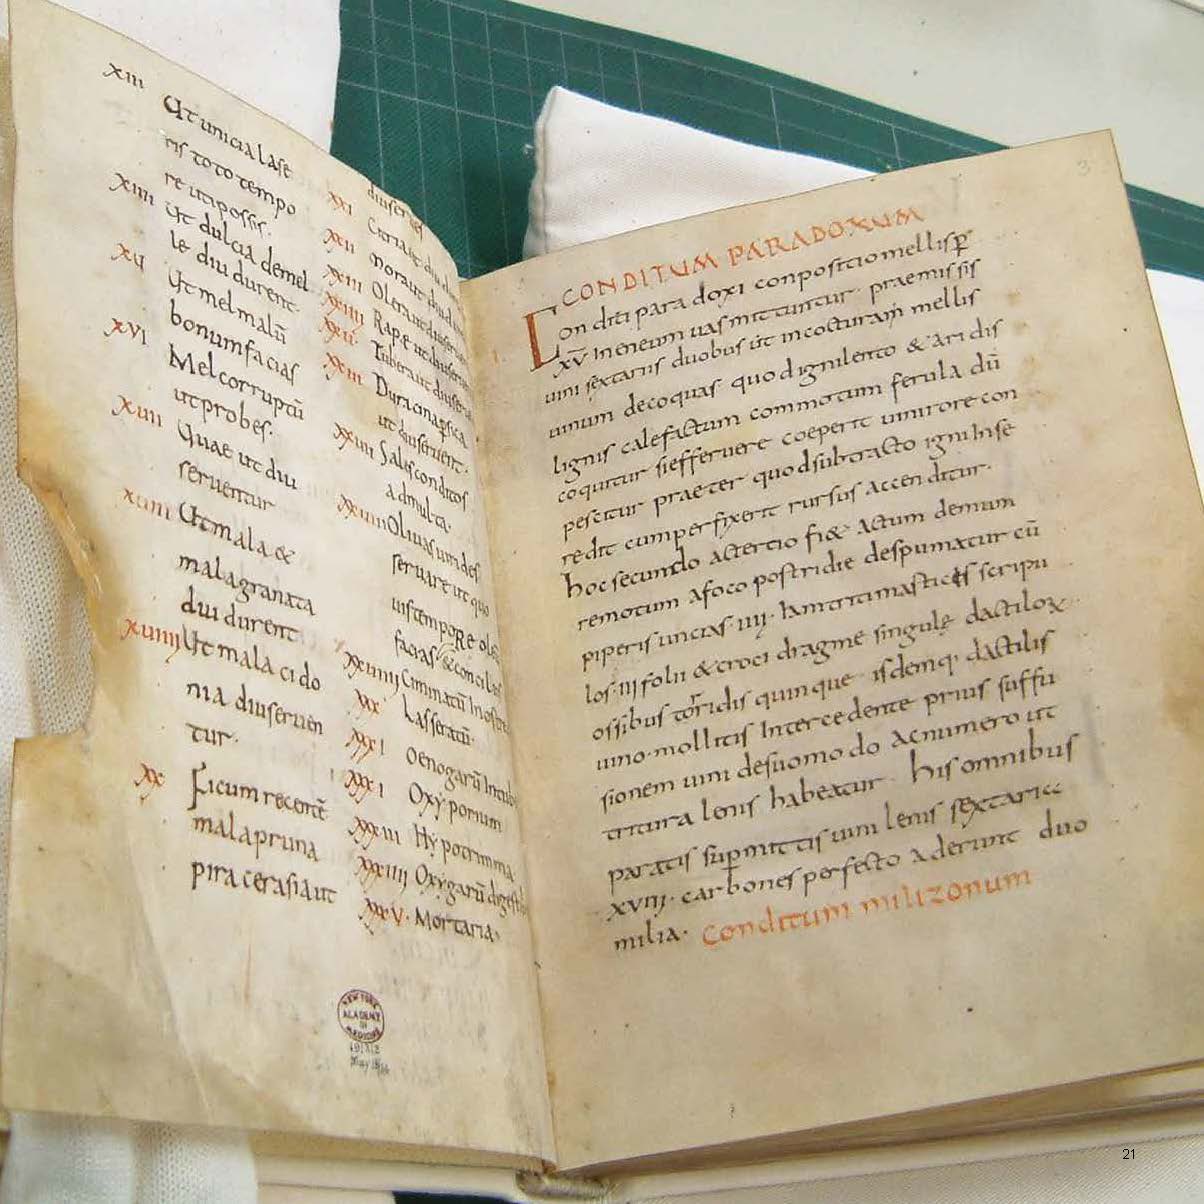 XIII Ut uncia lase
ris toto tempo
re uti possis.
XIIII Ut dulcia de mel
le diu durent.
XV Ut mel malū
bonum facias
XVI Mel corruptū
ut probes.
XVII Quae ut diu
serventur
XVIII Ut mala &
mala granata
diu durent
XVIIII Ut mala cido
nia diu serven
tur.
XX Ficum recentē
mala pruna
pira cerasia ut
diu serves
XXI Citria ut diu
XXII Mora ut diu
XXIII Olera ut diu
XXIIII Rapæ ut diu
XXV Tubera ut diu
XXVI Duracina p̱sica
ut diu servent.
XXVII Sales conditos
ad multa.
XXVIII Olivas virides
servare ut quo
vis tempore oleū
facias
XXVIIII Ciminatū in ostrea
XXX Lasseratū.
XXXI Oenogarū in tubera
XXXII Oxyporium
XXXIII Hypotrimma
XXXIIII Oxygarū digestibile
XXXV. Mortaria.
3
CONDITUM PARADOXUM
I. Conditi paradoxi conpositio mellis p̄
XV in eneum vas mittuntur. praemissis
vini sextariis duobus ut in cocturam mellis
vinum decoquas quod igni lento & aridis
lignis calefactum commotum ferula dū
coquitur si effervere coeperit vini rore con
pescitur praeter quod subtracto igni in se
redit cum perfrixerit rursus accenditur.
hoc secundo ac tertio fi& ac tum demum
remotum a foco postridie despumatur cū
piperis uncias IIII. iam triti masticis scripu
los III folii & croci dragme singulę dactilox
ossibus torridis quinque isdemq; dactilis
vino mollitis intercedente prius suffu
sionem vini de suo modo ac numero ut
tritura lenis habeatur. his omnibus
paratis sup̄mittis vini lenis sextaria
XVIII. carbones perfecto aderunt duo
milia. Conditum milizonum
NEW YORK
ACADEMY
OF
MEDICINE
21